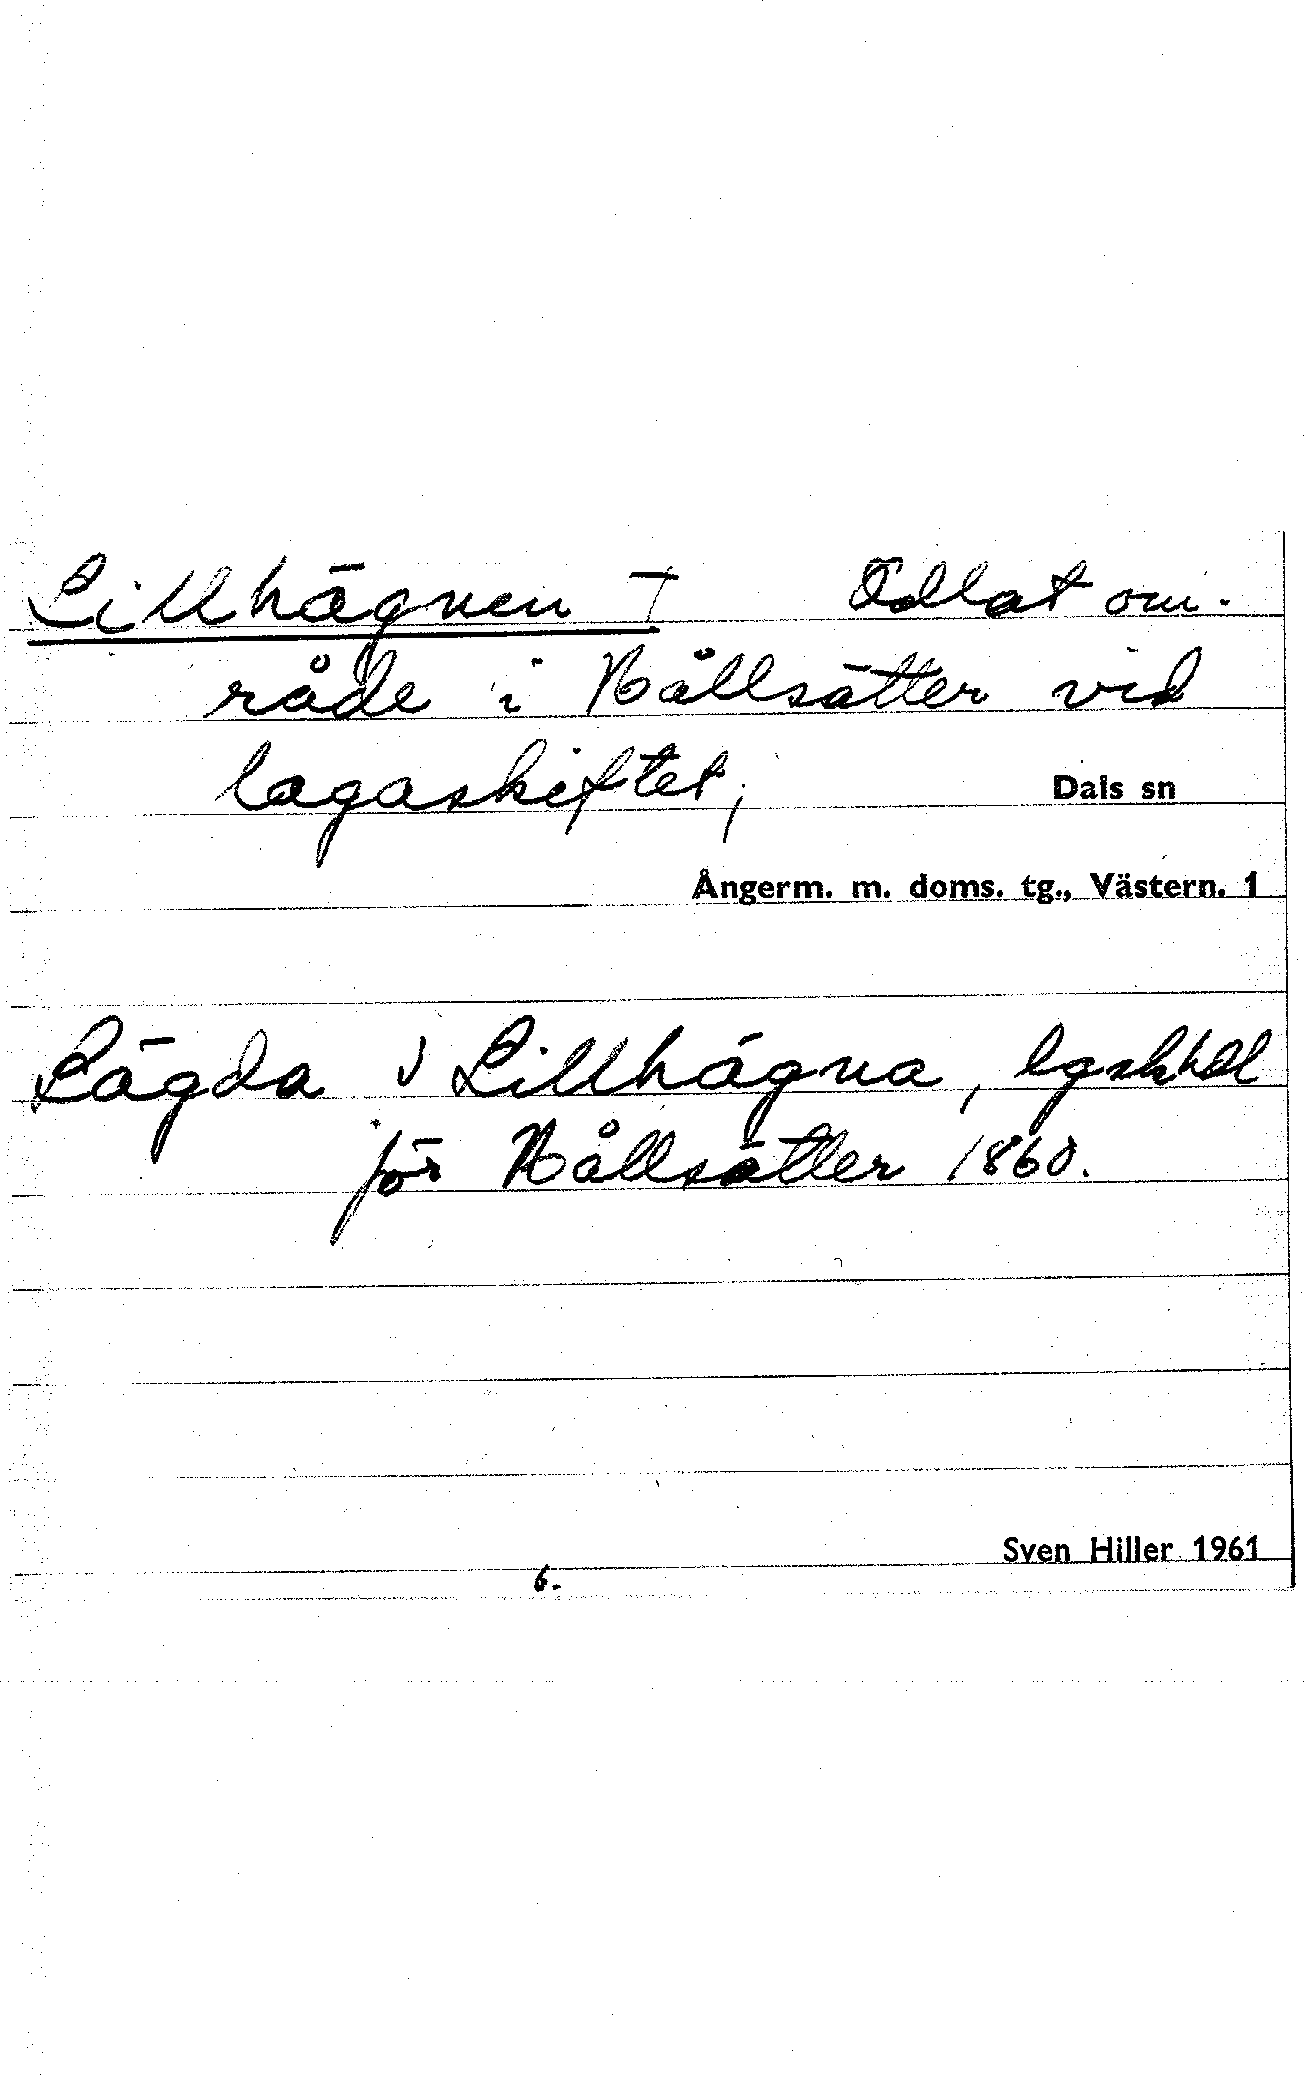 Lillhägnen † Odlat om-
råde i Hållsätter vid
lagaskiftet,
Dals sn
Ångerm. m. doms. tg., Västern. 1
Lägda i Lillhägna, lgskhdl
för Hållsätter 1860.
Sven Hiller 1961
6.